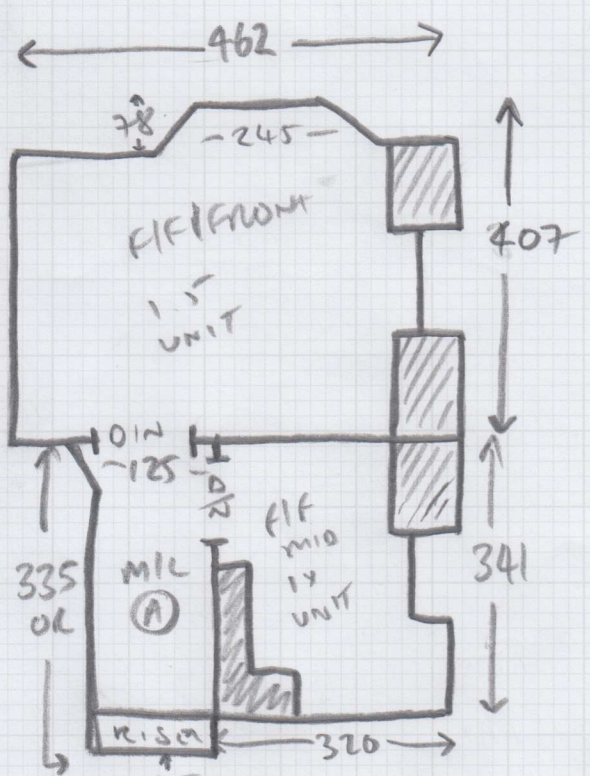 462
78
- 245 -
F/F/FRONT
1.5
UNIT
407
D/N
~125-
D/N
F/F
MID
1Y
UNIT
M/L
A
335
OR
341
RISER
320